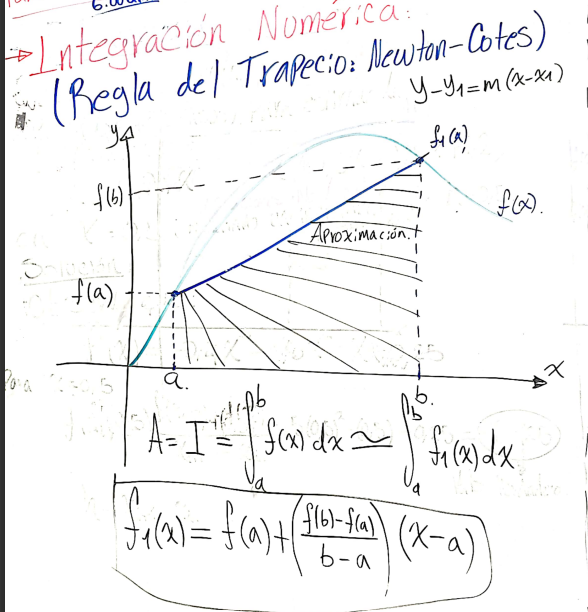 → Integración Numérica:
(Regla del Trapecio: Newton-Cotes)
y-y₁=m(x-x₁)
y
f₁(a)
f(b)
f(x).
Aproximación.
f(a)
x
a.
b.
A = I = ∫ₐᵇ f(x) dx ≃ ∫ₐᵇ f₁(x) dx
f₁(x) = f(a) + ((f(b)-f(a))/(b-a)) (x-a)